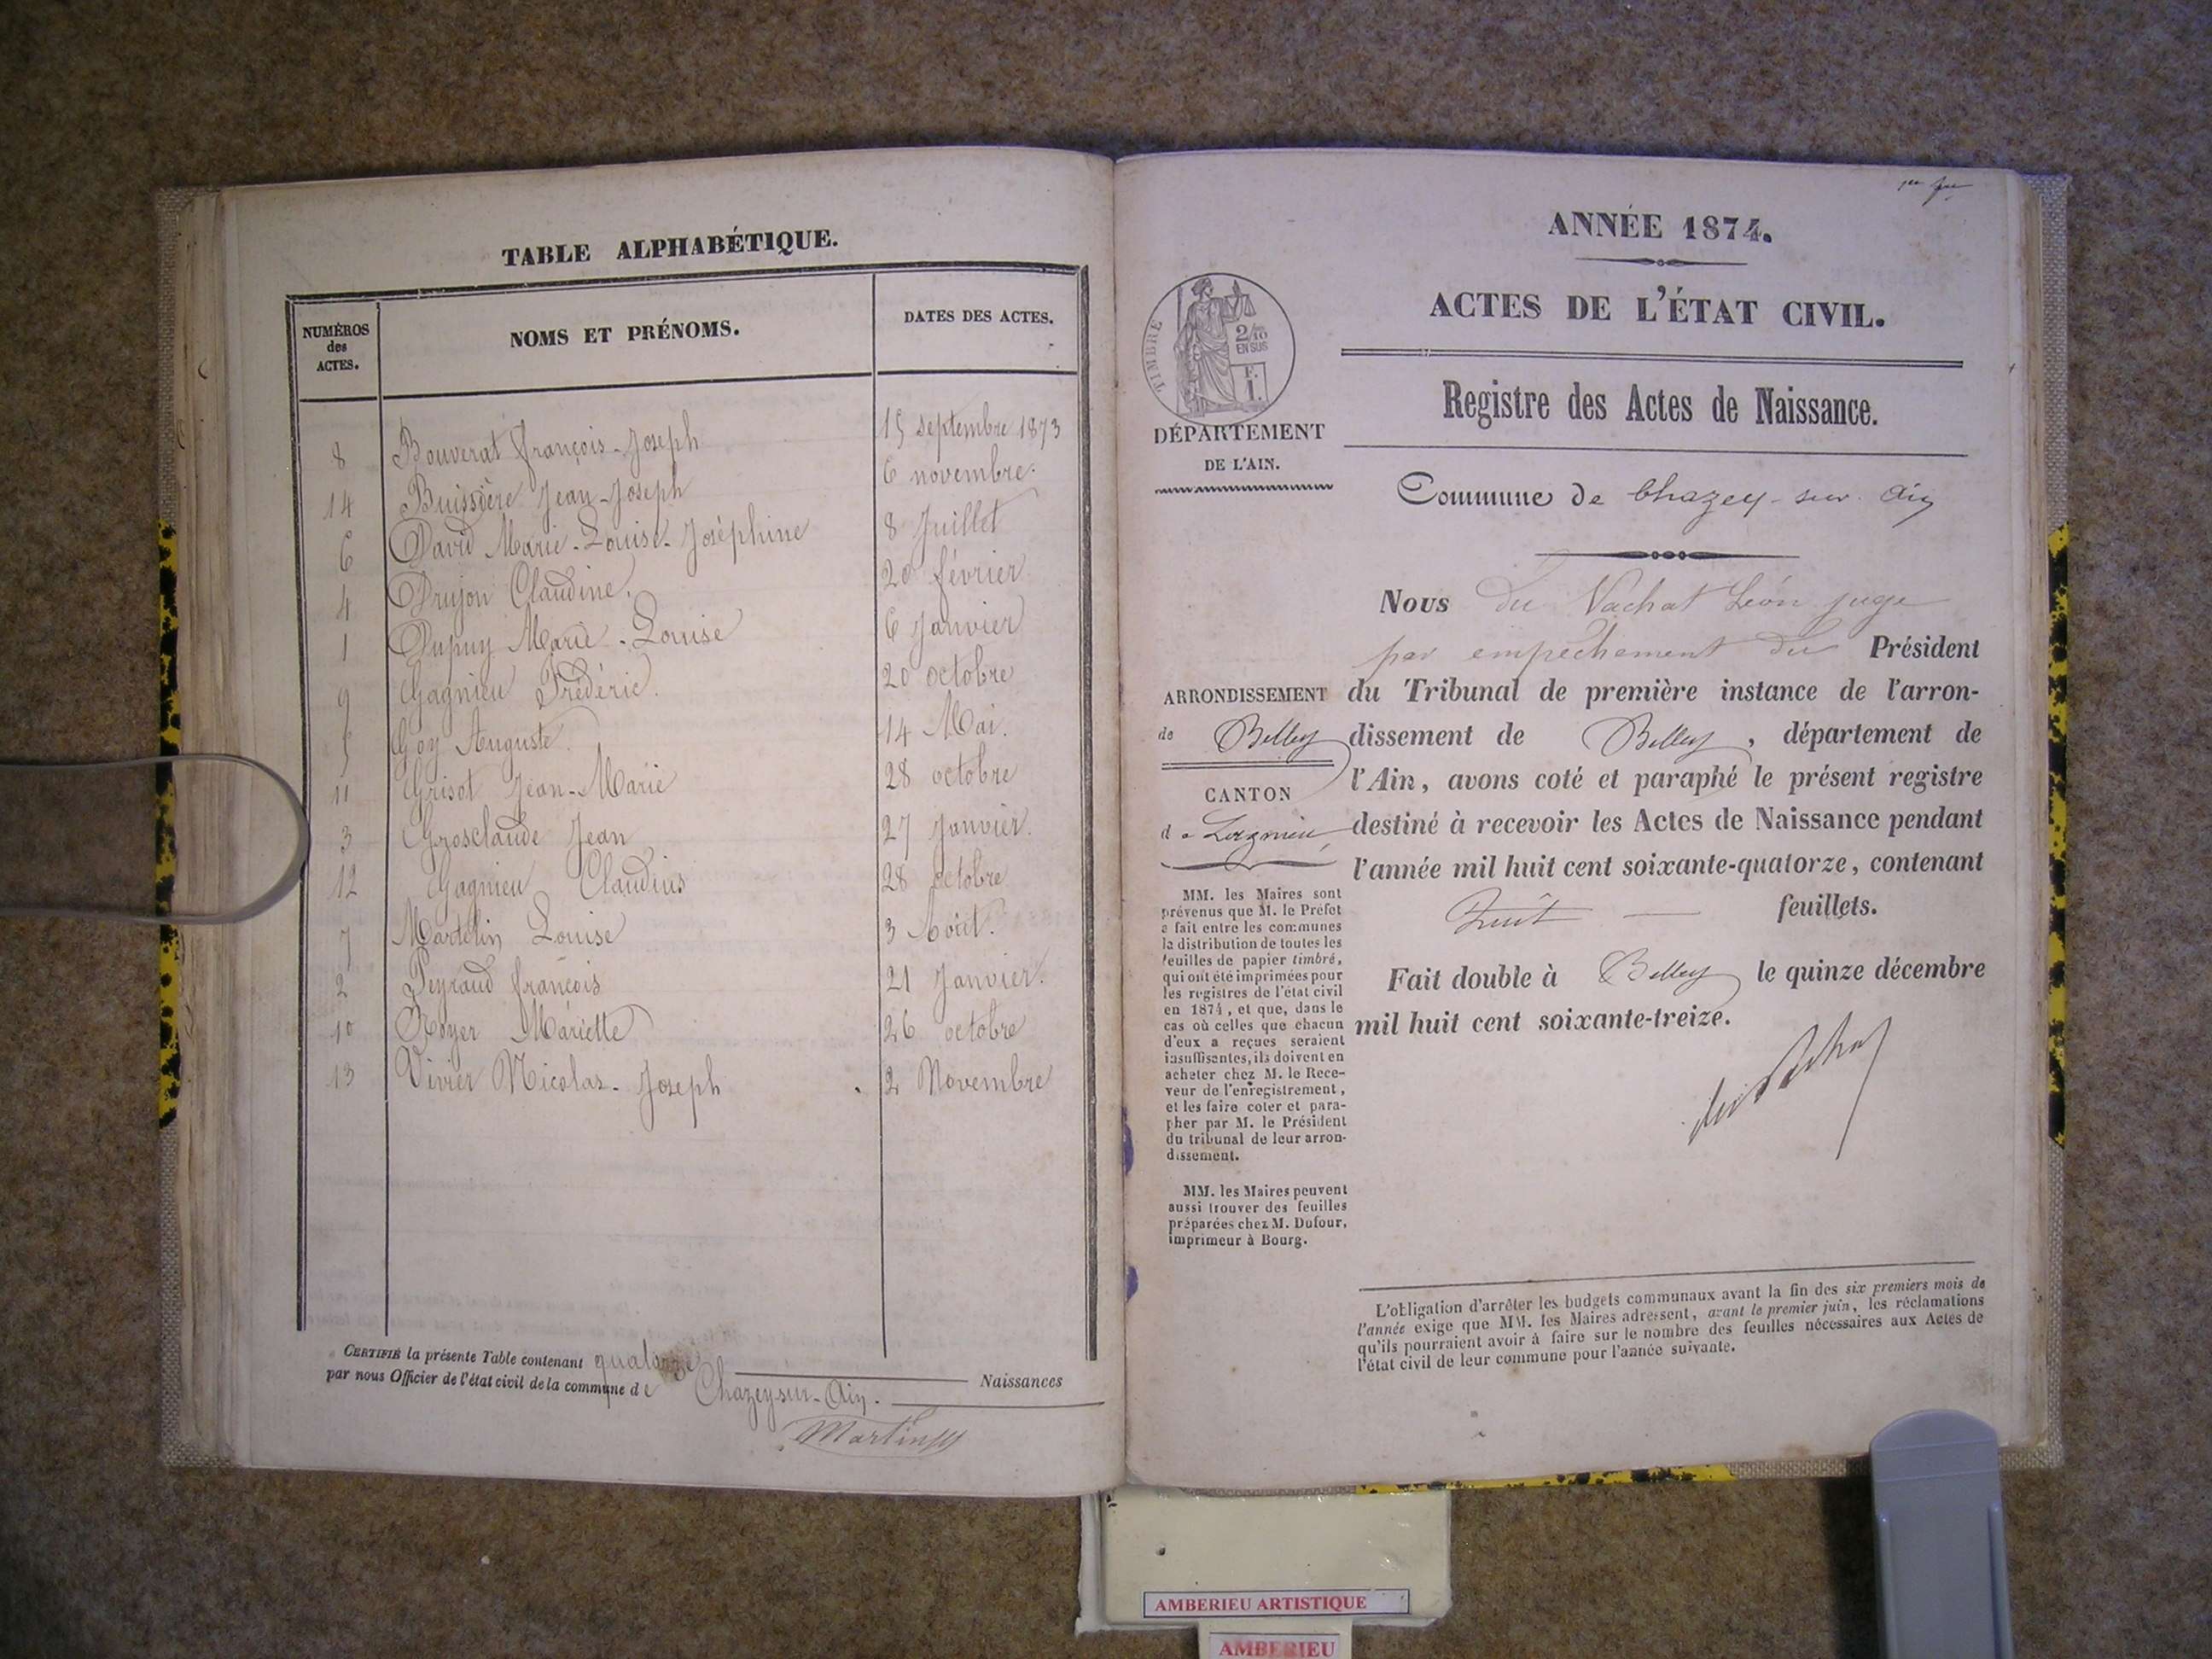 TABLE ALPHABÉTIQUE.
NUMÉROS des ACTES. NOMS ET PRÉNOMS. DATES DES ACTES.
8 Bouverat françois-Joseph 15 septembre 1873
14 Buissière Jean-Joseph 6 novembre.
6 David Marie-Louise-Joséphine 8 Juillet
4 Drujon Claudine. 20 février
1 Dupuy Marie-Louise 6 Janvier
9 Gagnieu Frédéric. 20 octobre
5 Goy Auguste. 14 Mai.
11 Grisot Jean-Marie 28 octobre
3 Grosclaude Jean 27 Janvier.
12 Gagnieu Claudius 28 octobre
7 Martelin Louise 3 Août.
2 Peyraud françois 21 Janvier.
10 Royer Mariette 26 octobre
13 Vivier Nicolas-Joseph 2 Novembre
CERTIFIÉ la présente Table contenant quatorze Naissances
par nous Officier de l'état civil de la commune de Chazey-sur-Ain.
ANNÉE 1874.
ACTES DE L'ÉTAT CIVIL.
Registre des Actes de Naissance.
TIMBRE
2/10
EN SUS
F.
1.
DÉPARTEMENT
DE L'AIN.
Commune de Chazey-sur-Ain
Nous du Vachat Léon juge
par empêchement du Président
du Tribunal de première instance de l'arron-
dissement de Belley, département de
l'Ain, avons coté et paraphé le présent registre
destiné à recevoir les Actes de Naissance pendant
l'année mil huit cent soixante-quatorze, contenant
huit feuillets.
Fait double à Belley le quinze décembre
mil huit cent soixante-treize.
ARRONDISSEMENT
de Belley
CANTON
de Lagnieu
MM. les Maires sont
prévenus que M. le Préfet
a fait entre les communes
la distribution de toutes les
feuilles de papier timbré,
qui ont été imprimées pour
les registres de l'état civil
en 1874, et que, dans le
cas où celles que chacun
d'eux a reçues seraient
insuffisantes, ils doivent en
acheter chez M. le Rece-
veur de l'enregistrement,
et les faire coter et para-
pher par M. le Président
du tribunal de leur arron-
dissement.
MM. les Maires peuvent
aussi trouver des feuilles
préparées chez M. Dufour,
imprimeur à Bourg.
L'obligation d'arrêter les budgets communaux avant la fin des six premiers mois de
l'année exige que MM. les Maires adressent, avant le premier juin, les réclamations
qu'ils pourraient avoir à faire sur le nombre des feuilles nécessaires aux Actes de
l'état civil de leur commune pour l'année suivante.
AMBERIEU ARTISTIQUE
AMBERIEU